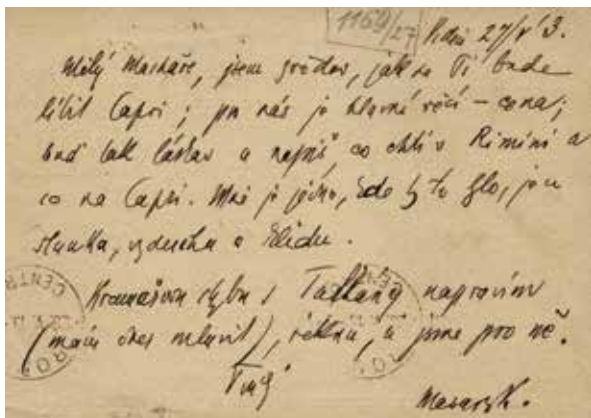 1169/27
27/V 13.
Milý Machaře, jsem zvědav, jak se Ti bude
líbit Capri; pro nás je hlavní věcí – cena;
buď tak láskav a napiš, co chtí v Rimini a
co na Capri. Mně je jedno, kde by to šlo, jen
slunka, vzduchu a klidu.
Kramářovu chybu s napravím
(mám dnes mluvit), řeknu, a jsme pro ně.
Tvůj
Masaryk.
CENTRO